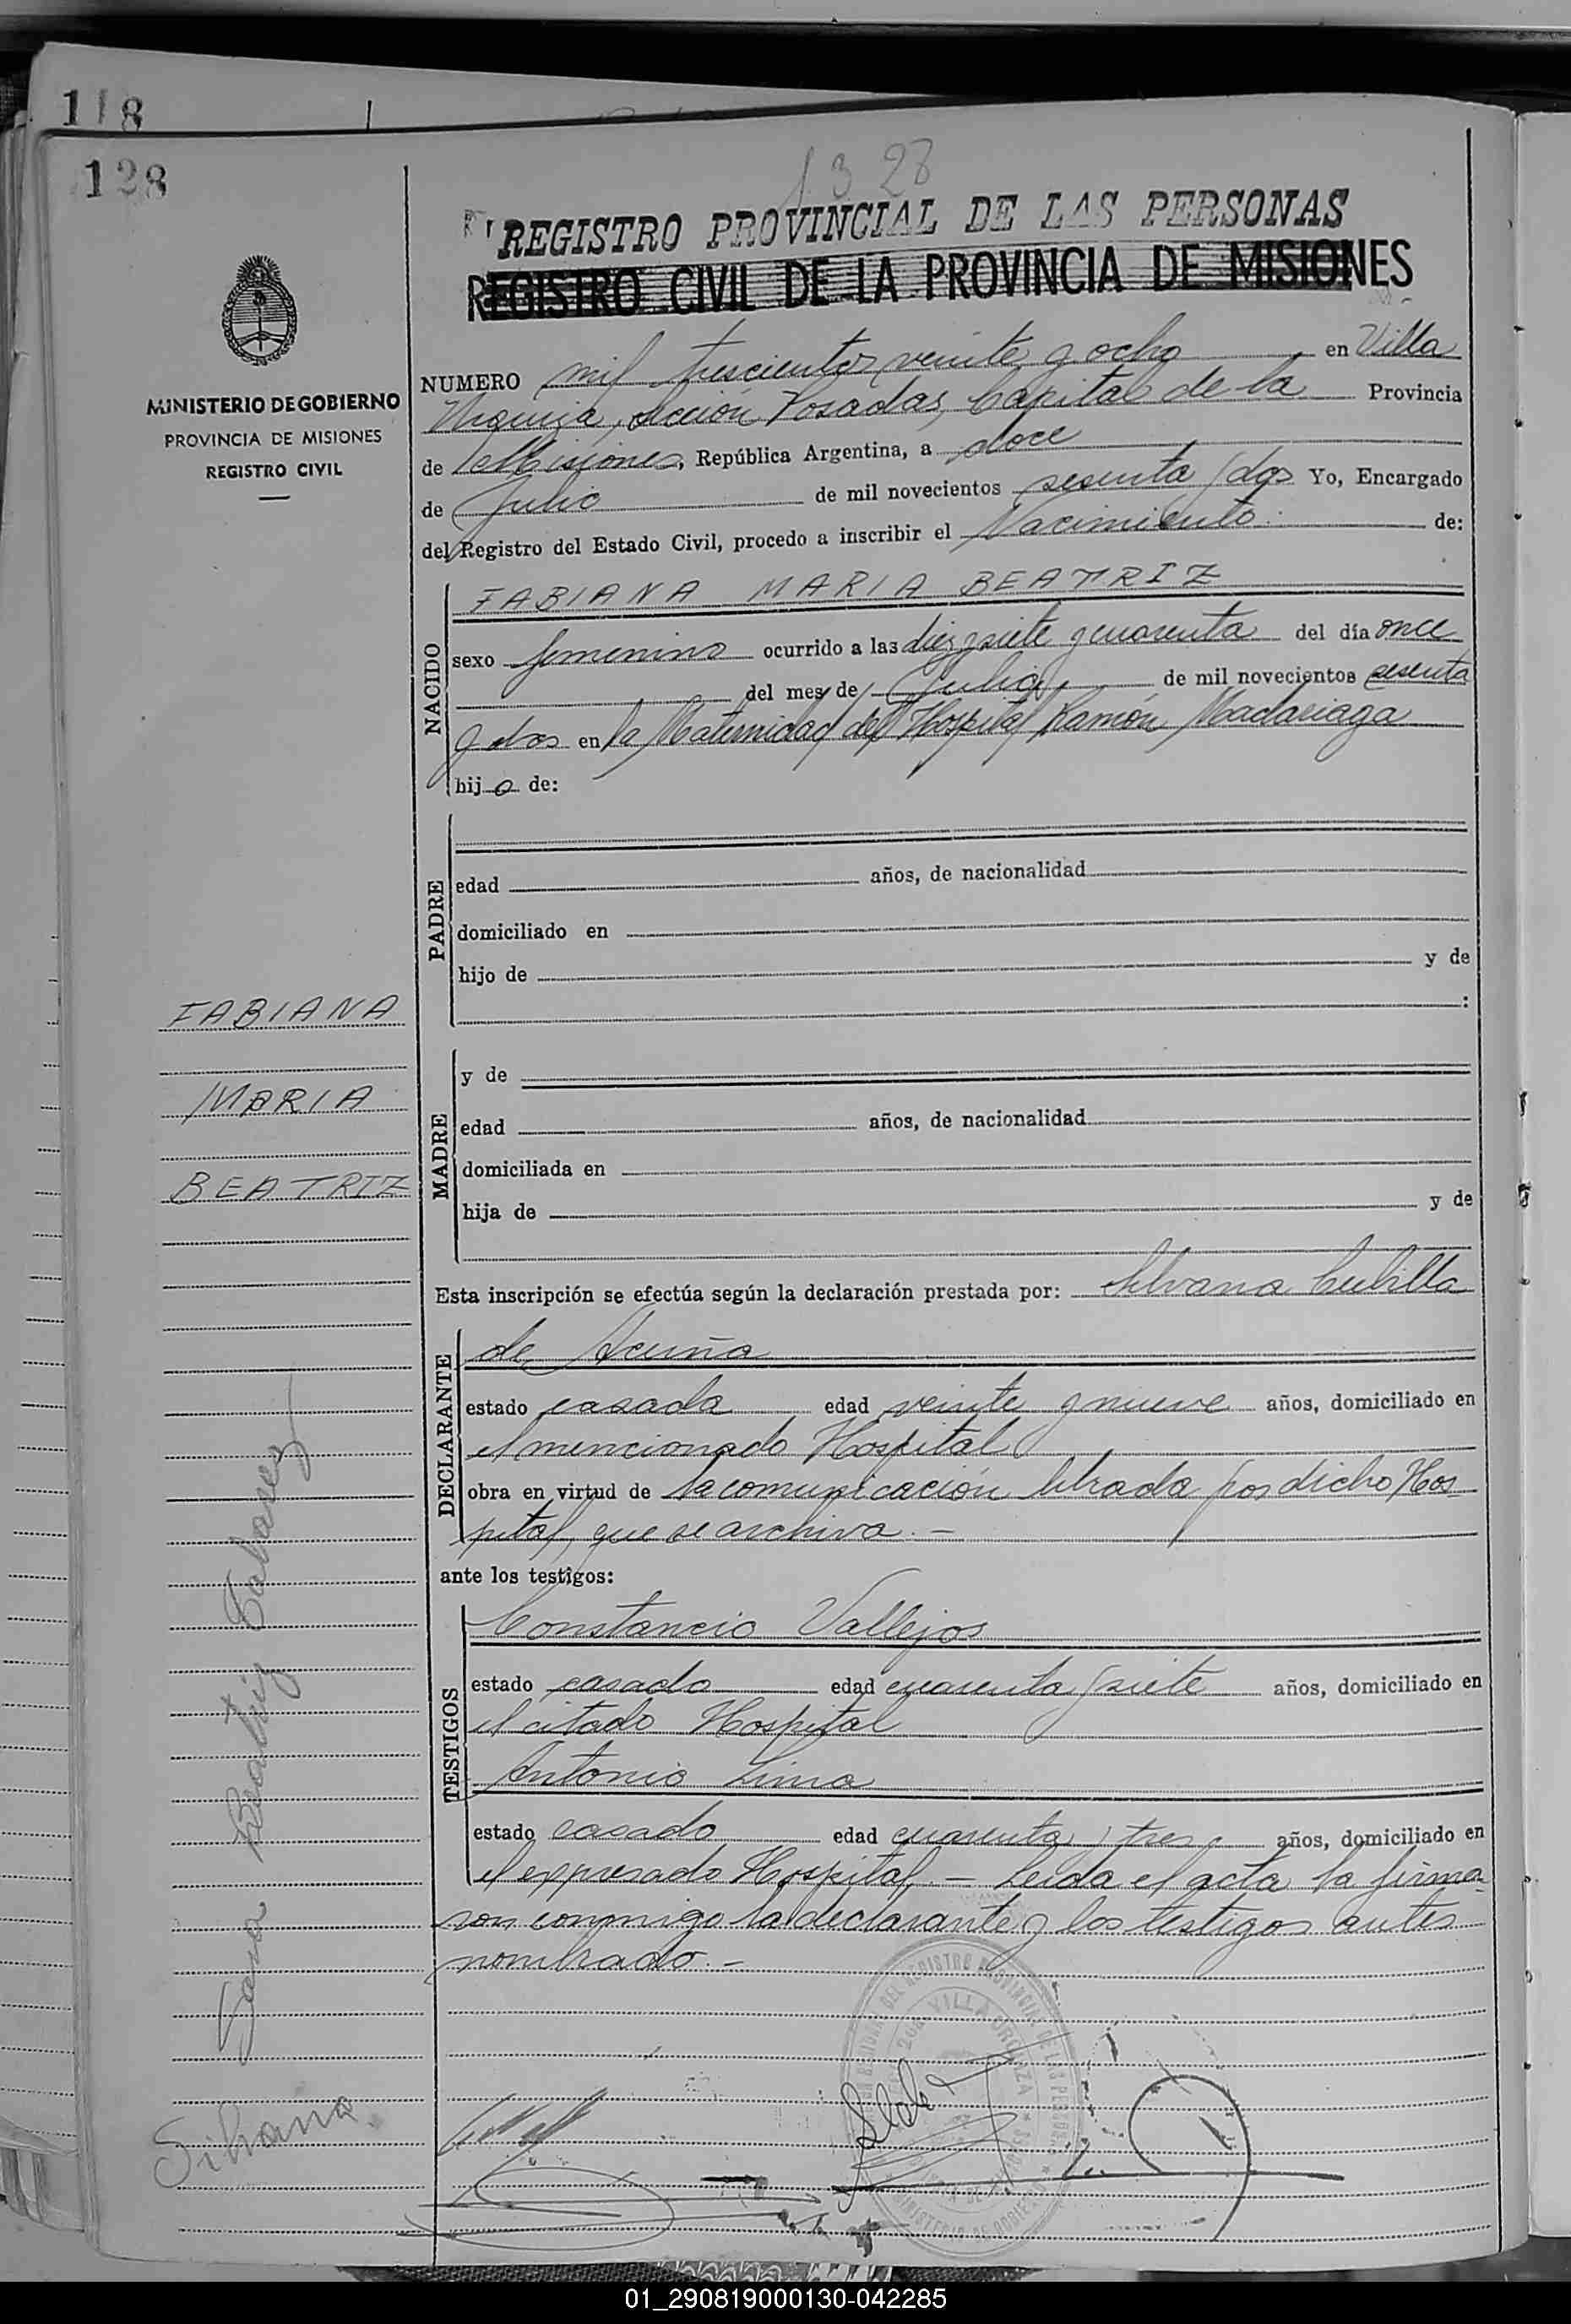 118
128
1328
REGISTRO PROVINCIAL DE LAS PERSONAS
REGISTRO CIVIL DE LA PROVINCIA DE MISIONES
MINISTERIO DE GOBIERNO
PROVINCIA DE MISIONES
REGISTRO CIVIL
NUMERO mil trescientos veinte y ocho en Villa
Urquiza, Sección Posadas, Capital de la Provincia
de Misiones, República Argentina, a doce
de Julio de mil novecientos sesenta y dos Yo, Encargado
del Registro del Estado Civil, procedo a inscribir el Nacimiento de:
NACIDO
FABIANA MARIA BEATRIZ
sexo femenino ocurrido a las diez y siete y cuarenta del día once
del mes de Julio de mil novecientos sesenta
y dos en la Maternidad del Hospital Ramón Madariaga
hija de:
PADRE
edad años, de nacionalidad
domiciliado en
hijo de y de
:
FABIANA
MARIA
BEATRIZ
MADRE
y de
edad años, de nacionalidad
domiciliada en
hija de y de
Esta inscripción se efectúa según la declaración prestada por: Silvana Cubilla
DECLARANTE
de Acuña
estado casada edad veinte y nueve años, domiciliado en
el mencionado Hospital
obra en virtud de la comunicación librada por dicho Hos-
pital, que se archiva.-
ante los testigos:
TESTIGOS
Constancio Vallejos
estado casado edad cuarenta y siete años, domiciliado en
el citado Hospital
Antonio Lima
estado casado edad cuarenta y tres años, domiciliado en
el expresado Hospital.- Leída el acta la firma-
ron conmigo la declarante y los testigos antes
nombrado.-
Sara Beatriz Cabarez
Silvana
VILLA URQUIZA
MINISTERIO DE GOBIERNO
01_290819000130-042285